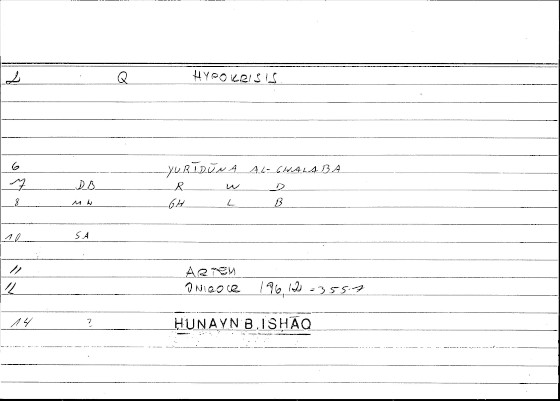 2 Q HYPOKRISIS
6 YURĪDŪNA AL-GHALABA
7 DB R W D
8 MN GH L B
10 SA
11 ARTEM
12 ONIROCR 196,12 = 355.7
14 ? HUNAYN B. ISHĀQ